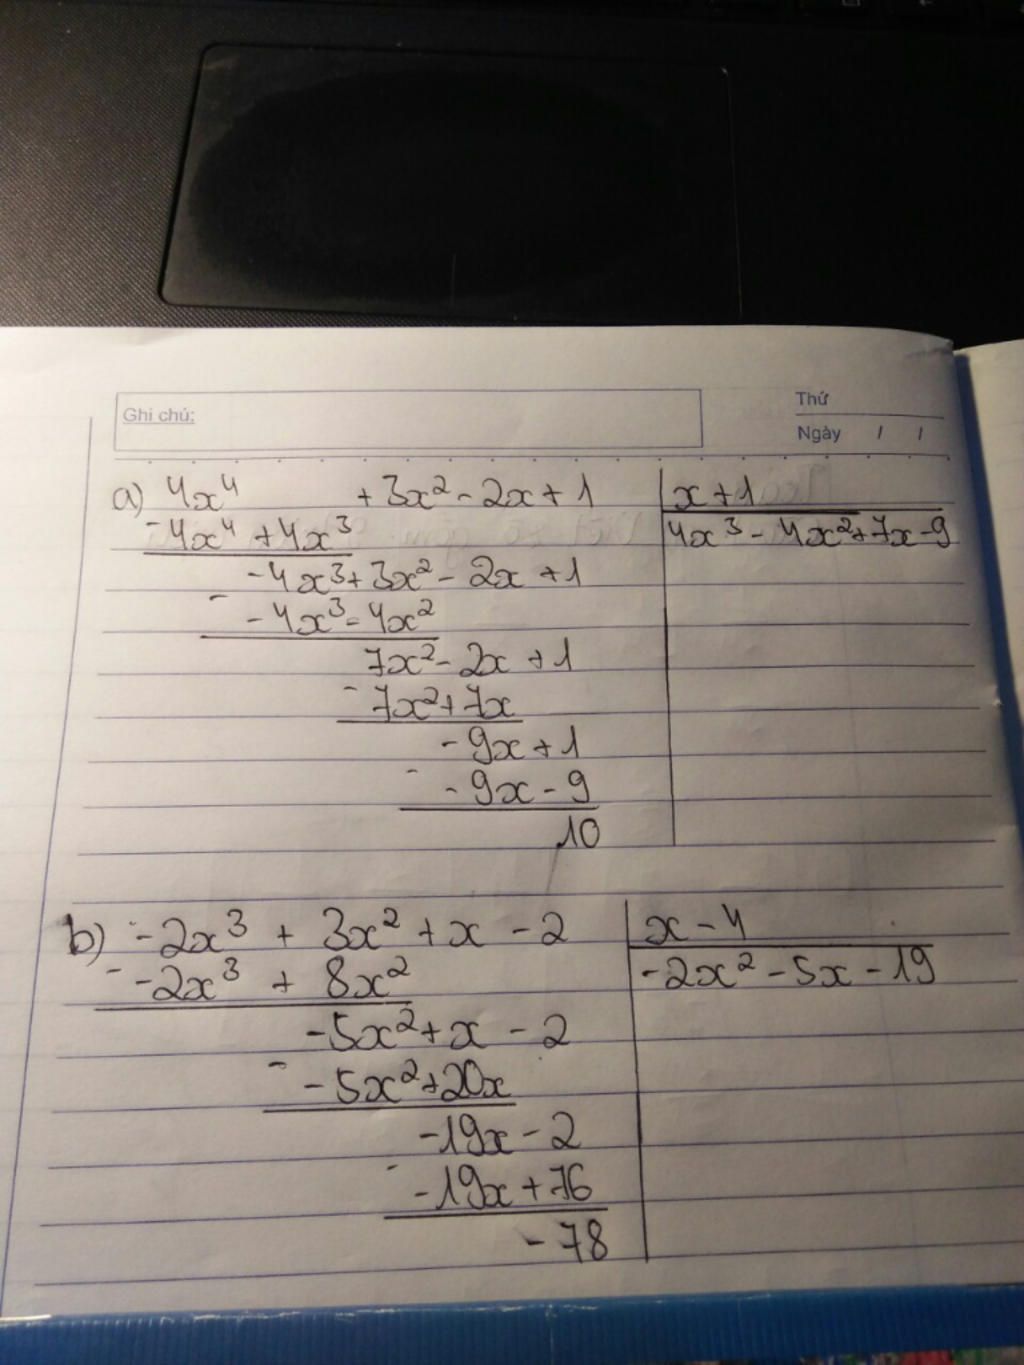 Ghi chú:
Thứ
Ngày / /
a) 4x⁴ + 3x² - 2x + 1 | x + 1
- 4x⁴ + 4x³ | 4x³ - 4x² + 7x - 9
-4x³ + 3x² - 2x + 1
- -4x³ - 4x²
7x² - 2x + 1
- 7x² + 7x
-9x + 1
- -9x - 9
10
b) -2x³ + 3x² + x - 2 | x - 4
- -2x³ + 8x² | -2x² - 5x - 19
-5x² + x - 2
- -5x² + 20x
-19x - 2
- -19x + 76
-78